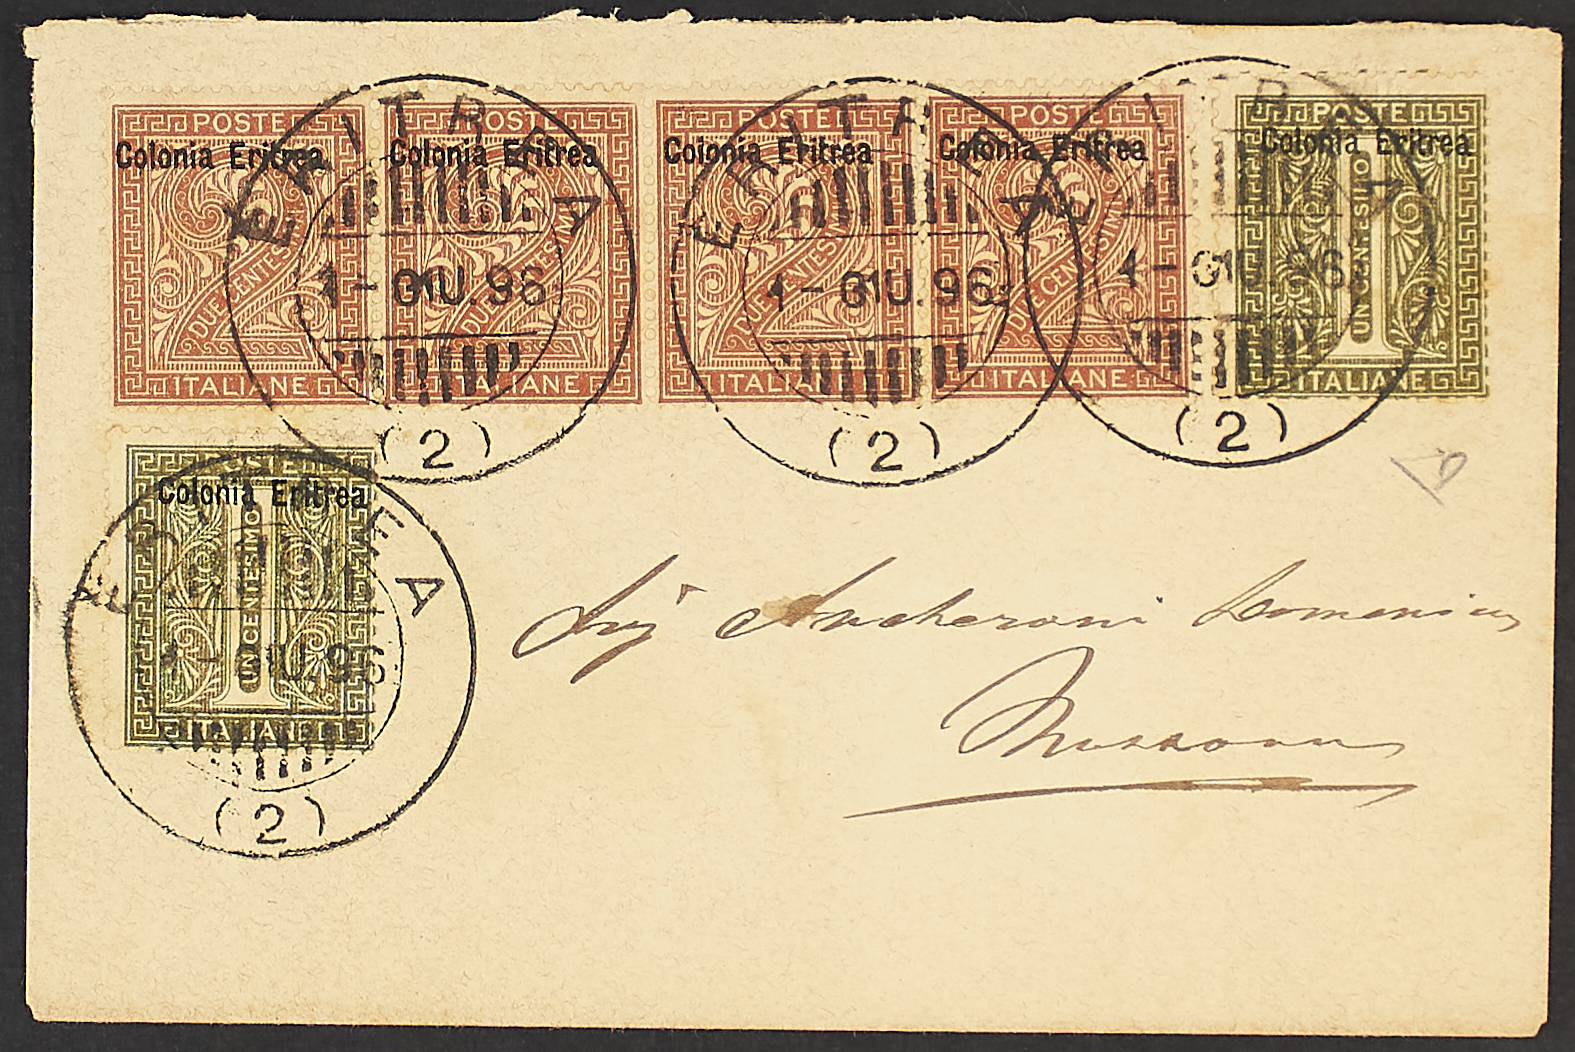 POSTE POSTE POSTE POSTE POSTE
Colonia Eritrea Colonia Eritrea Colonia Eritrea Colonia Eritrea Colonia Eritrea
DUE CENTESIMI DUE CENTESIMI DUE CENTESIMI DUE CENTESIMI UN CENTESIMO
ITALIANE ITALIANE ITALIANE ITALIANE ITALIANE
ERITREA ERITREA ERITREA
1-GIU.96 1-GIU.96 1-GIU.96
(2) (2) (2)
POSTE
Colonia Eritrea
UN CENTESIMO
ITALIANE
ERITREA
1-GIU.96
(2)
Sig Ancheroni Domenico
Massaua